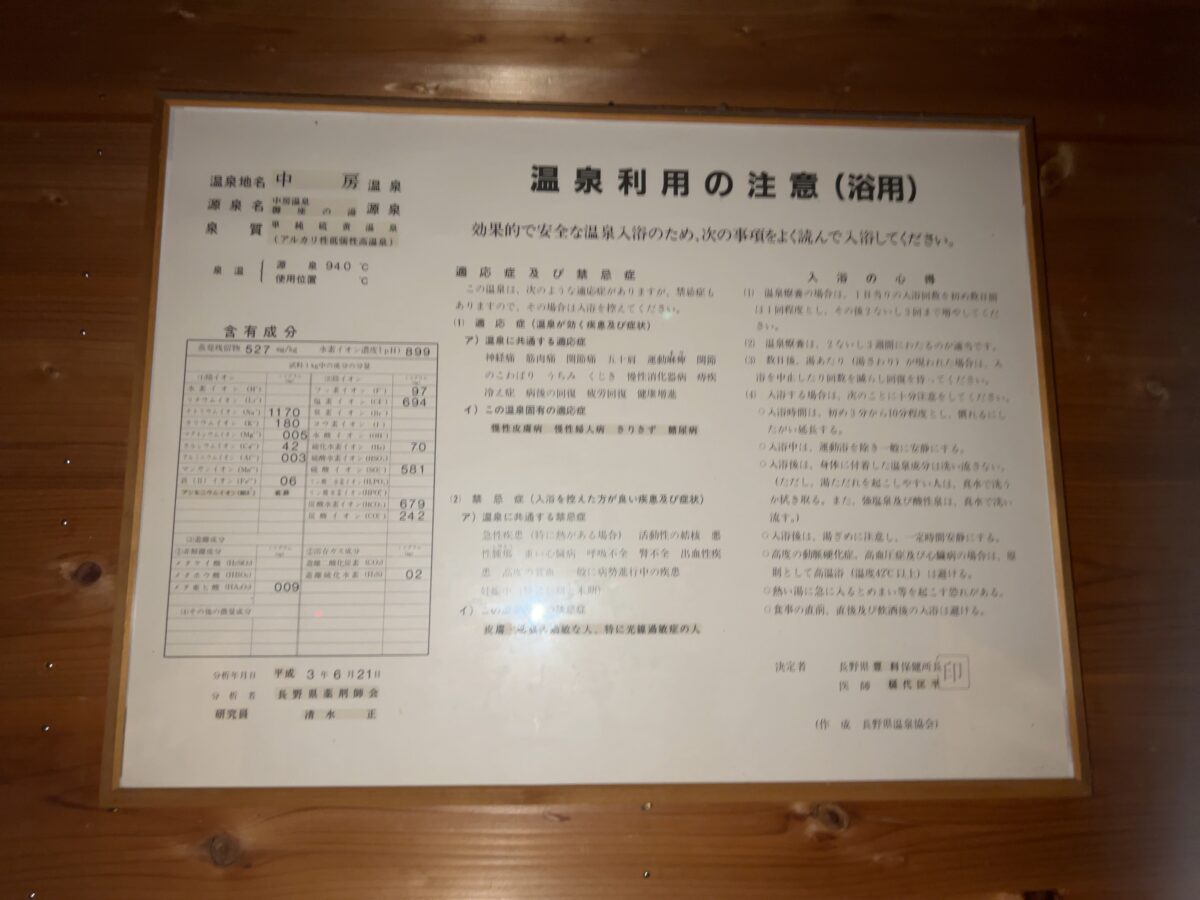 温泉利用の注意(浴用)
効果的で安全な温泉入浴のため、次の事項をよく読んで入浴してください。
温泉地名 中房 温泉
源泉名 中房温泉 御座の湯 源泉
泉質 単純硫黄温泉
(アルカリ性低張性高温泉)
泉温 源泉 940 ℃
使用位置 ℃
含有成分
蒸発残留物 527 mg/kg 水素イオン濃度(pH) 899
試料1kg中の成分の分量
(1)陽イオン ミリグラム(mg) (2)陰イオン ミリグラム(mg)
水素イオン(H⁺) フッ素イオン(F⁻) 97
リチウムイオン(Li⁺) 塩素イオン(Cl⁻) 694
ナトリウムイオン(Na⁺) 1170 臭素イオン(Br⁻)
カリウムイオン(K⁺) 180 ヨウ素イオン(I⁻)
マグネシウムイオン(Mg²⁺) 005 水酸イオン(OH⁻)
カルシウムイオン(Ca²⁺) 42 硫化水素イオン(HS⁻) 70
アルミニウムイオン(Al³⁺) 003 硫酸水素イオン(HSO₄⁻)
マンガンイオン(Mn²⁺) 硫酸イオン(SO₄²⁻) 581
鉄(II)イオン(Fe²⁺) 06
アンモニウムイオン(NH₄⁺) 痕跡
炭酸水素イオン(HCO₃⁻) 679
炭酸イオン(CO₃²⁻) 242
(3)遊離成分
①非解離成分 ミリグラム(mg) ②溶存ガス成分 ミリグラム(mg)
メタケイ酸(H₂SiO₃) 遊離二酸化炭素(CO₂)
メタホウ酸(HBO₂) 遊離硫化水素(H₂S) 02
メタ亜ヒ酸(HAsO₂) 009
(4)その他の微量成分
分析年月日 平成 3年6月21日
分析者 長野県薬剤師会
研究員 清水 正
適応症及び禁忌症
この温泉は、次のような適応症がありますが、禁忌症も
ありますので、その場合は入浴を控えてください。
(1) 適応症(温泉が効く疾患及び症状)
ア)温泉に共通する適応症
神経痛 筋肉痛 関節痛 五十肩 運動麻痺 関節
のこわばり うちみ くじき 慢性消化器病 痔疾
冷え症 病後の回復 疲労回復 健康増進
イ)この温泉固有の適応症
慢性皮膚病 慢性婦人病 きりきず 糖尿病
(2) 禁忌症(入浴を控えた方が良い疾患及び症状)
ア)温泉に共通する禁忌症
急性疾患(特に熱がある場合) 活動性の結核 悪
性腫瘍 重い心臓病 呼吸不全 腎不全 出血性疾
患 高度の貧血 一般に病勢進行中の疾患
妊娠中
イ)この 禁忌症
皮膚 過敏な人、特に光線過敏症の人
入浴の心得
(1) 温泉療養の場合は、1日当りの入浴回数を初め数日間
は1回程度とし、その後2ないし3回まで増やしてくだ
さい。
(2) 温泉療養は、2ないし3週間にわたるのが適当です。
(3) 数日後、湯あたり(湯ざわり)が現われた場合は、入
浴を中止したり回数を減らし回復を待ってください。
(4) 入浴する場合は、次のことに十分注意をしてください。
○入浴時間は、初め3分から10分程度とし、慣れるにし
たがい延長する。
○入浴中は、運動浴を除き一般に安静にする。
○入浴後は、身体に付着した温泉成分は洗い流さない。
(ただし、湯ただれを起こしやすい人は、真水で洗う
か拭き取る。また、強塩泉及び酸性泉は、真水で洗い
流す。)
○入浴後は、湯ざめに注意し、一定時間安静にする。
○高度の動脈硬化症、高血圧症及び心臓病の場合は、原
則として高温浴(温度42℃以上)は避ける。
○熱い湯に急に入るとめまい等を起こす恐れがある。
○食事の直前、直後及び飲酒後の入浴は避ける。
決定者 長野県豊科保健所長 印
医師
(作成 長野県温泉協会)